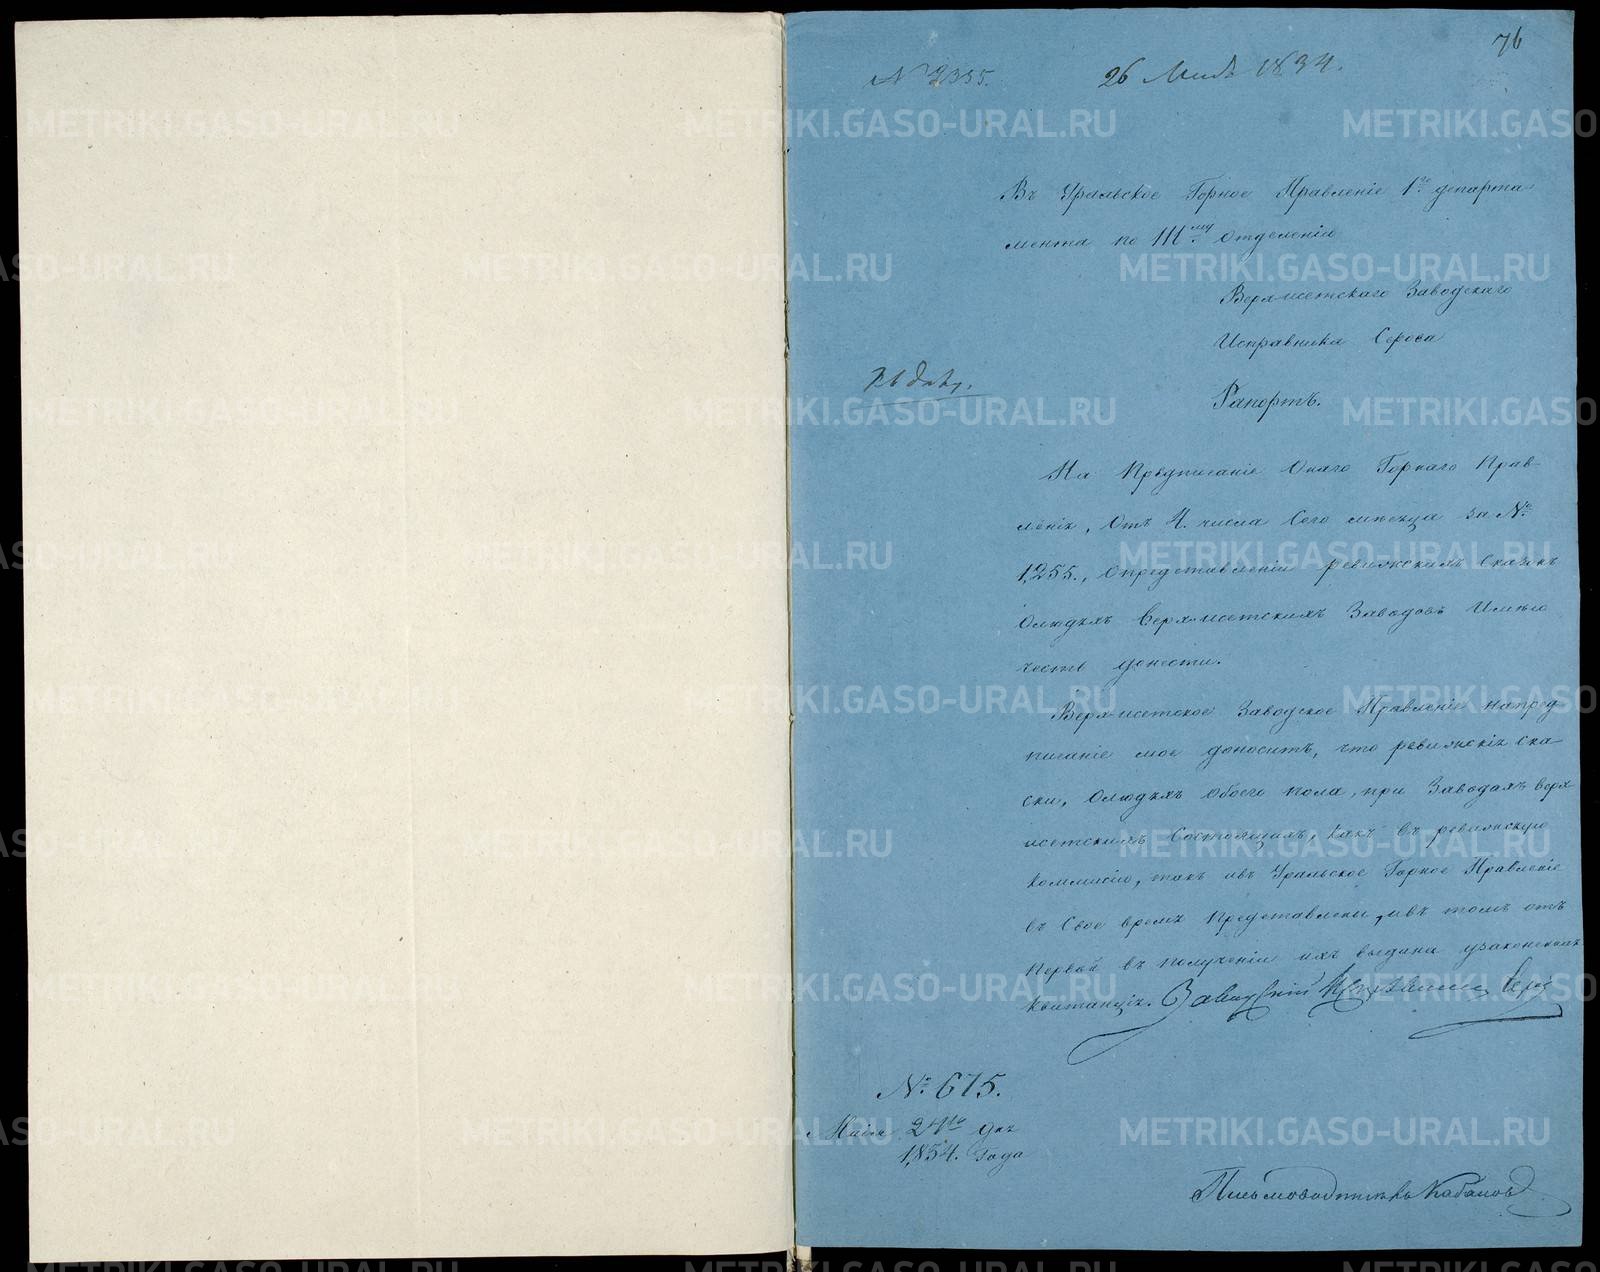 76
№ 2355.
26 Мая 1854.
Въ Уральское Горное Правленіе 1го департа-
мента по IIIму отделенію
Верхъисетскаго Заводскаго
Исправника Серова
Рапортъ.
Къ делу.
На Предписаніе Онаго Горнаго Прав-
ленія, Отъ 4. числа Сего месяца за №
1,255., опредставленіи ревижскихъ Сказокъ
олюдяхъ Верхъисетскихъ Заводовъ Имею
честь донести.
Верхъисетское Заводское Правленіе напред-
писаніе мое доноситъ, что ревижскія ска-
ски, олюдяхъ обоего пола, при Заводахъ верх-
исетскихъ Состоящихъ, какъ въ ревижскую
коммисію, такъ ивъ Уральское Горное Правленіе
въ Свое время представлены, ивъ томъ отъ
Первой въ полученіи ихъ выдана узаконенная
квитанція. Заводскій Исправникъ Серов
№ 675.
Маія 24го дня
1,854. Года
Письмоводитель Кабаков
METRIKI.GASO-URAL.RU